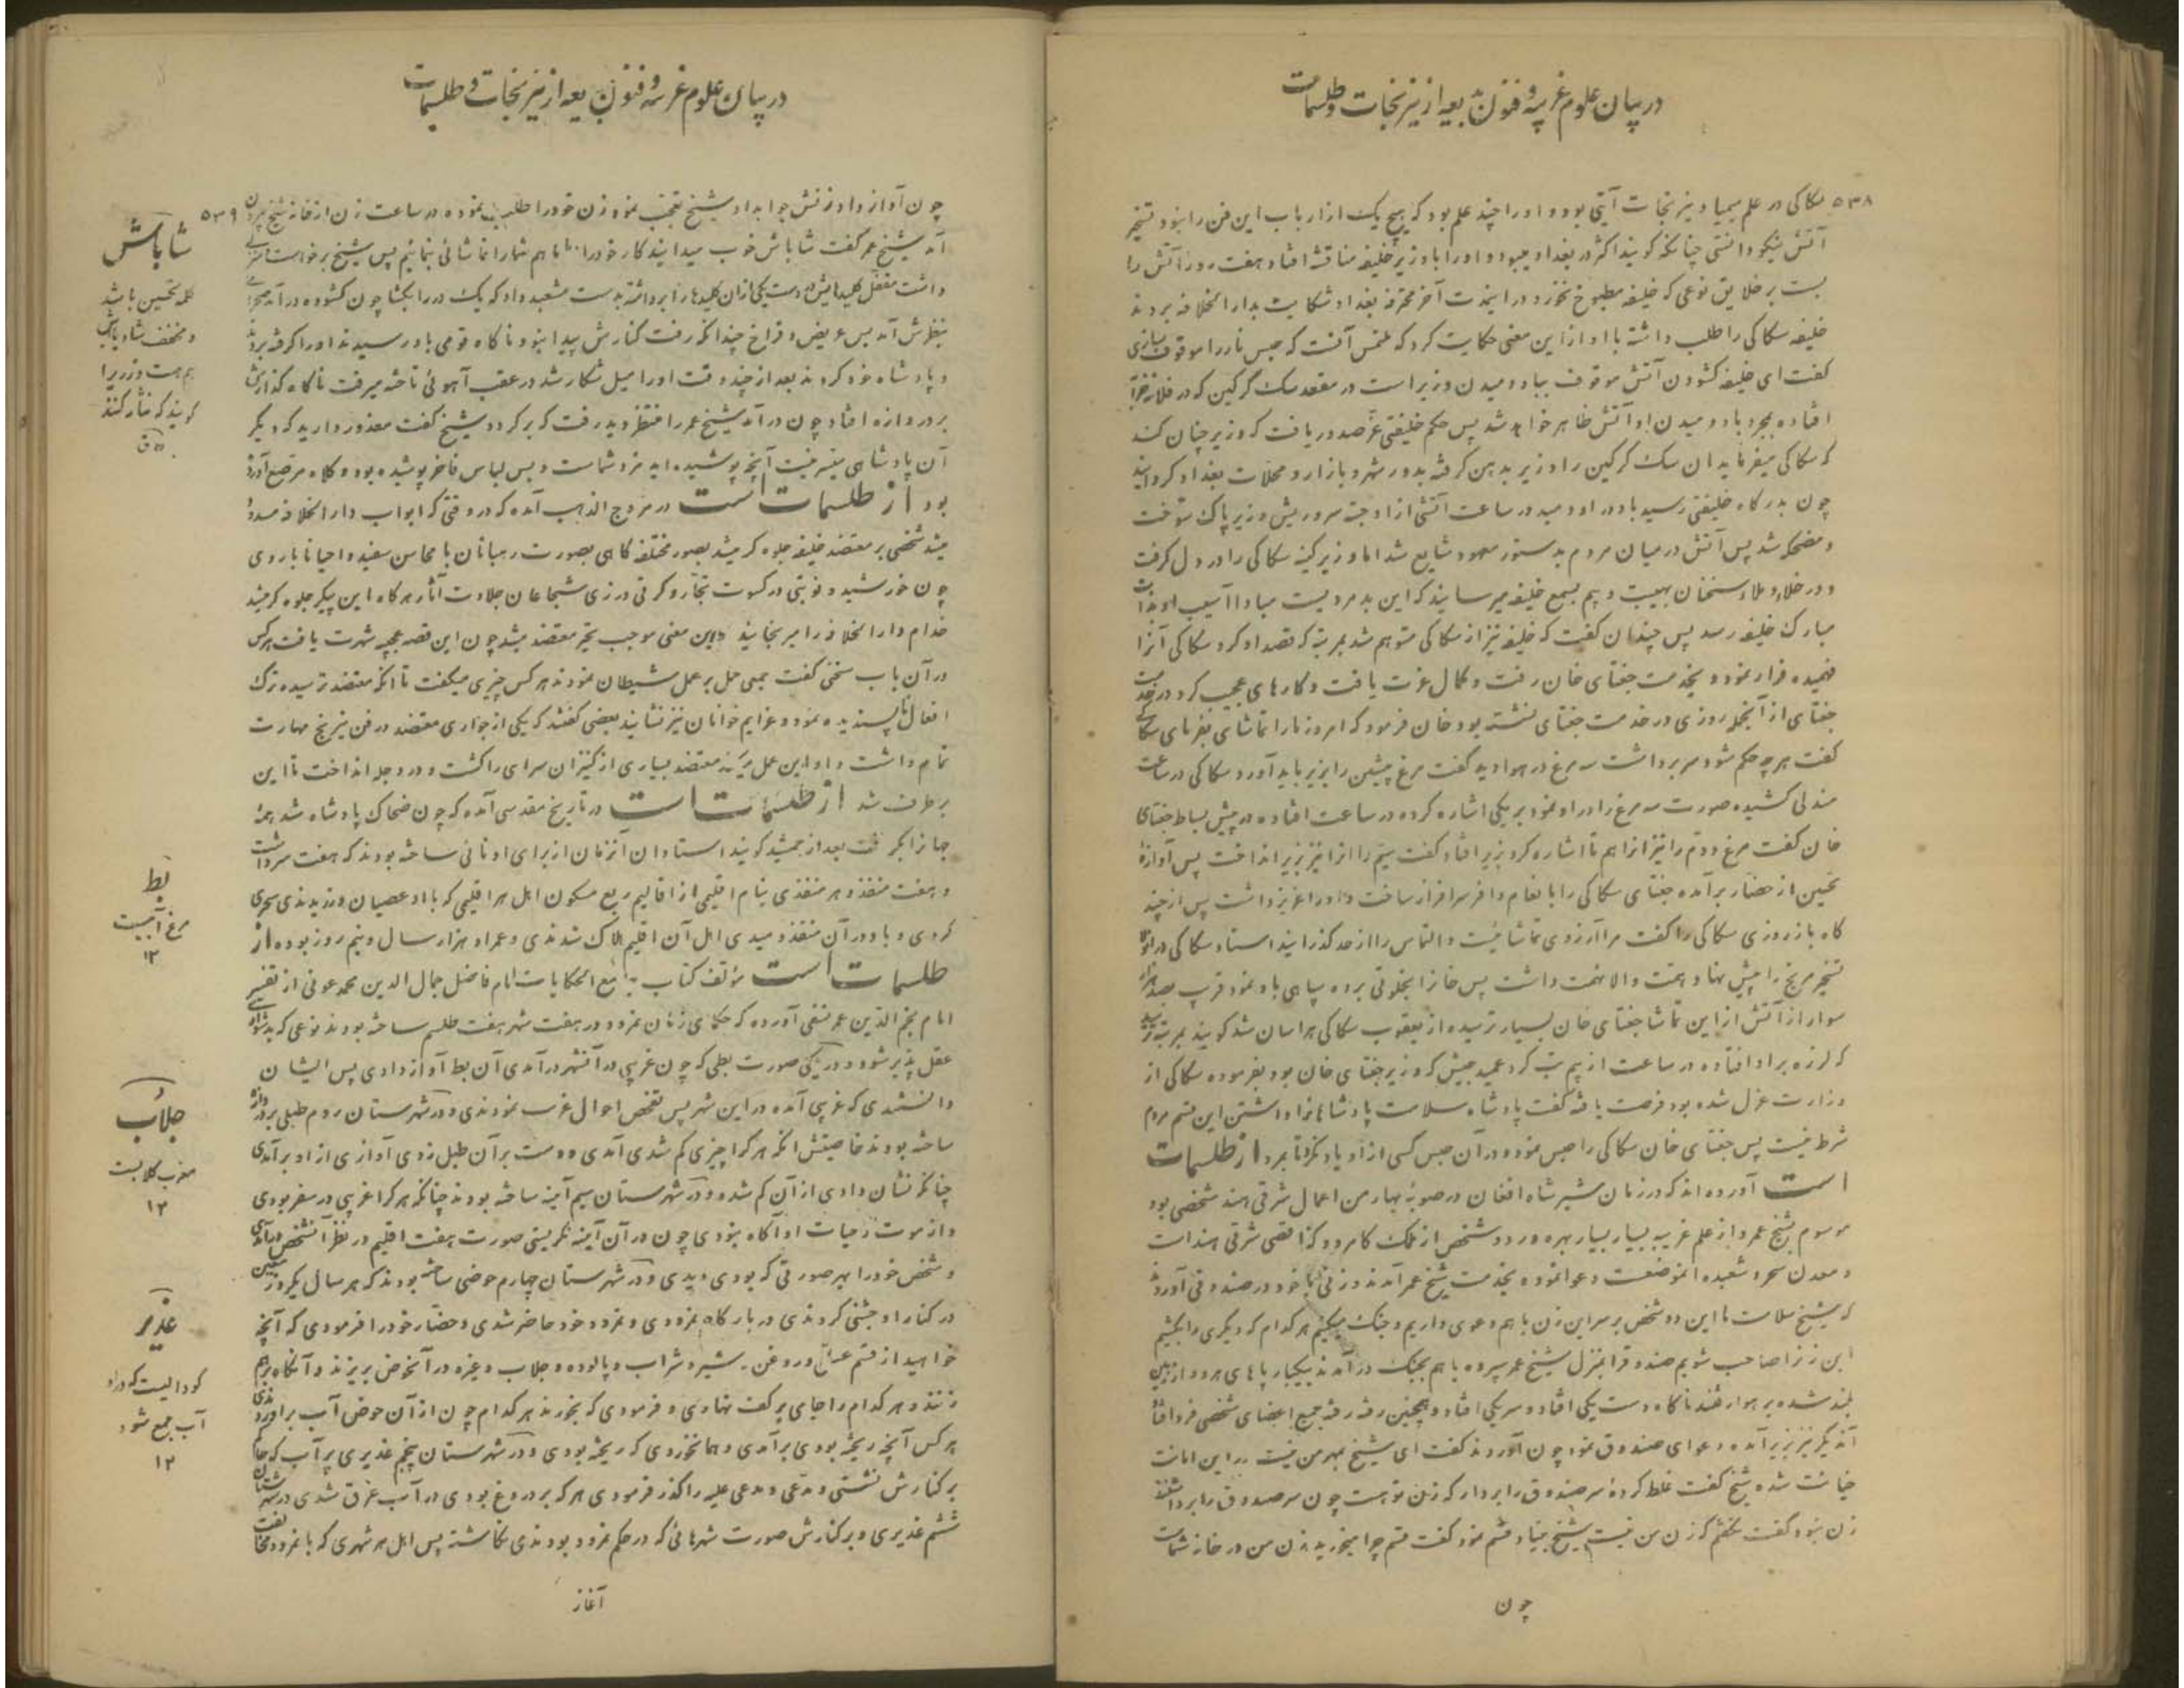 در بیان علوم غریبه و فنون بدیعه از نیرنجات و طلسمات
۵۳۸
سکاکی در علم سیمیا و نیرنجات آیتی بوده و او را چند علم بود که هیچ یک از ارباب این فن را نبود تسخیر
آتش نیکو دانستی چنانکه گویند اکثر در بغداد میبود و او را با وزیر خلیفه مناقشه افتاد هفت روز آتش را
بست بر خلایق نوعی که خلیفه مطبوخ نخورد در اینمدت آخر محترفه بغداد شکایت بدار الخلافه بردند
خلیفه سکاکی را طلب داشته با او از این معنی حکایت کرد که ملتمس آنست که حبس نار را موقوف سازی
گفت ای خلیفه گشودن آتش موقوف بباد دمیدن وزیر است در مقعد سگ گرگین که در فلان خرابه
افتاده بمجرد باد دمیدن او آتش ظاهر خواهد شد پس حکم خلیفتی عز صدور یافت که وزیر چنان کند
که سکاکی میفرماید آن سگ گرگین را وزیر بدهن گرفته بدور شهر و بازار و محلات بغداد گردانید
چون بدرگاه خلیفتی رسید باد در او دمید در ساعت آتشی از او جست سر و ریش وزیر پاک سوخت
و مضحکه شد پس آتش در میان مردم بدستور معهود شایع شد اما وزیر کینه سکاکی را در دل گرفت
و در خلاء و ملاء سخنان بهیبت و بیم بسمع خلیفه میرسانید که این بد مردیست مبادا آسیب او بذات
مبارک خلیفه رسد پس چندان گفت که خلیفه نیز از سکاکی متوهم شد بمرتبه که قصد او کرد سکاکی آنرا
فهمیده فرار نمود و بخدمت جغتای خان رفت و کمال عزت یافت و کارهای عجیب کرد در خدمت
جغتای از آنجمله روزی در خدمت جغتای نشسته بود خان فرمود که امروز ما را تماشای بفرمای سکاکی
گفت هر چه حکم شود سر برداشت سه مرغ در هوا دید گفت مرغ پیشین را بزیر باید آورد سکاکی در ساعت
مندلی کشیده صورت سه مرغ را در او نمود بر یکی اشاره کرده در ساعت افتاده در پیش بساط جغتای
خان گفت مرغ دوم را نیز آنرا هم تا اشاره کرد بزیر افتاد گفت سیم را آنرا نیز بزیر انداخت پس آوازه
تحسین از حضار برآمده جغتای سکاکی را بانعام وافر سرافراز ساخت و او را عزیز داشت پس از چند
گاه باز روزی سکاکی را گفت مرا آرزوی تماشائیست و التماس را از حد گذرانید استاد سکاکی در آنوقت
تسخیر مریخ را پیش نهاد همت والا نهمت داشت پس خان را بخلوتی برده سپاهی باو نمود قریب بصد هزار
سوار از آتش از این تماشا جغتای خان بسیار ترسیده از یعقوب سکاکی هراسان شد گویند بمرتبه ترسید
که لرزه بر او افتاده در ساعت از بیم تب کرد عمید حبش که وزیر جغتای خان بود بفرموده سکاکی از
وزارت عزل شده بود فرصت یافته گفت پادشاه سلامت پادشاهانرا واداشتن این قسم مردم
شرط نیست پس جغتای خان سکاکی را حبس نموده و در آن حبس کسی از او یاد نکرد تا بمرد از طلسمات
است آورده اند که در زمان شیر شاه افغان در صوبه بهار من اعمال شرقی هند شخصی بود
موسوم بشیخ عمر و از علم غریبه بسیار بسیار بهره ور دو شخص از ملک کامرود که اقصی شرقی هند است
و معدن سحر و شعبده آنموضعست دعوا نموده بخدمت شیخ عمر آمدند و زنی با خود در صندوقی آورده
که شیخ سلامت ما این دو شخص بر سر این زن با هم دعوی داریم و جنگ میکنیم هر کدام که دیگری را بکشیم
این زن را صاحب شویم صندوق را بمنزل شیخ عمر سپرده با هم بجنگ درآمدند بیکبار پاهای هر دو از زمین
بلند شده بر هوا رفتند ناگاه دست یکی افتاد و سر یکی افتاد و همچنین رفته رفته جمیع اعضای شخصی فرو افتاد
آندیگر نیز بزیر آمده دعوای صندوق نمود چون آوردند گفت ای شیخ مهر من نیست در این امانت
خیانت شده شیخ گفت غلط کرده سر صندوق را بردار که زنت تو هست چون سر صندوق را برداشتند
زن نبود گفت نگفتم که زن من نیست شیخ بنیاد قسم نمود گفت قسم چرا میخورید زن من در خانه شماست
چون
در بیان علوم غریبه و فنون بدیعه از نیرنجات و طلسمات
۵۳۹
چون آواز داد زنش جواب داد شیخ تعجب نمود زن خود را طلب نموده در ساعت زن از خانه شیخ بیرون
آمد شیخ عمر گفت شاباش خوب میدانید کار خود را اما ما هم شما را تماشائی بنمائیم پس شیخ برخواست سرایی
داشت مقفل کلیدایش در دست یکی از آن کلیدها را برداشته بدست مشعبد داد که یک در را بگشا چون گشوده درآمد صحرایی
بنظرش آمد بس عریض و فراخ چندانکه رفت کنارش پیدا نبود ناگاه قومی باو رسیدند او را گرفته بردند
و پادشاه خود کردند بعد از چند وقت او را میل شکار شد در عقب آهوئی تاخته میرفت ناگاه گذارش
بر دروازه افتاد چون درآمد شیخ عمر را منتظر دید رفت که برگردد شیخ گفت معذور دارید که دیگر
آن پادشاهی میسر نیست آنچه پوشیده اید مزد شماست و بس لباس فاخر پوشیده بود و کلاه مرصع آورده
بود از طلسمات است در مروج الذهب آمده که در وقتی که ابواب دار الخلافه مسدود
میشد شخصی بر معتضد خلیفه جلوه گر میشد بصور مختلفه گاهی بصورت رهبانان با محاسن سفید و احیانا با روی
چون خورشید و نوبتی در کسوت تجار و کرتی در زی شجاعان جلادت آثار هرگاه این پیکر جلوه گر میشد
خدام دار الخلافه را میرنجانید و این معنی موجب تحیر معتضد میشد چون این قصه عجیبه شهرت یافت هر کس
در آن باب سخنی گفت جمعی حمل بر عمل شیطان نمودند هر کس چیزی میگفت تا آنکه معتضد ترسیده ترک
افعال ناپسندیده نمود و عزایم خوانان نیز نشانید بعضی گفتند که یکی از جواری معتضد در فن نیرنج مهارت
تمام داشت و او این عمل میکند معتضد بسیاری از کنیزان سرای را کشت و در دجله انداخت تا این
برطرف شد از طلسمات است در تاریخ مقدسی آمده که چون ضحاک پادشاه شد همه
جهانرا بگرفت بعد از جمشید گویند استادان آنزمان از برای او نائی ساخته بودند که هفت سر داشت
و هفت منفذ و هر منفذی بنام اقلیمی از اقالیم ربع مسکون اهل هر اقلیمی که با او عصیان ورزیدندی سحری
کردی و باد در آن منفذ دمیدی اهل آن اقلیم هلاک شدندی و عمر او هزار سال و نیم روز بوده از
طلسمات است مؤلف کتاب جامع الحکایات امام فاضل جمال الدین محمد عوفی از تفسیر
امام نجم الدین عمر نسفی آورده که حکمای زمان نمرود در هفت شهر هفت طلسم ساخته بودند نوعی که بدشواری
عقل پذیر شود و در یکی صورت بطی که چون غریبی در آنشهر درآمدی آن بط آواز دادی پس ایشان
دانستندی که غریبی آمده در این شهر پس تفحص احوال غریب نمودندی و در شهرستان دوم طبلی بر دروازه
ساخته بودند خاصیتش آنکه هر که را چیزی گم شدی آمدی و دست بر آن طبل زدی آوازی از او برآمدی
چنانکه نشان دادی از آن گم شده و در شهرستان سیم آینه ساخته بودند چنانکه هر که را غریبی در سفر بودی
و از موت و حیات او آگاه نبودی چون در آن آینه نگریستی صورت هفت اقلیم در نظر آنشخص درآمدی
و شخص خود را بهر صورتی که بودی دیدی و در شهرستان چهارم حوضی ساخته بودند که هر سال یکروز معین
در کنار او جشنی کردندی در بارگاه نمرودی و نمرود خود حاضر شدی و حضار خود را فرمودی که آنچه
خواهید از قسم عسل و روغن و شیر و شراب و پالوده و جلاب و غیره در آنحوض بریزند و آنگاه برهم
زنند و هر کدام را جامی بر کف نهادی و فرمودی که بخورند هر کدام چون از آن حوض آب برآوردندی
هر کس آنچه ریخته بودی برآمدی و همانخوردی که ریخته بودی و در شهرستان پنجم غدیری پر آب که حاکم
بر کنارش نشستی و مدعی و مدعی علیه را گذر فرمودی هر که بر دروغ بودی در آب غرق شدی در شهرستان
ششم غدیری و بر کنارش صورت شهرهائی که در حکم نمرود بودندی نگاشته پس اهل هر شهری که با نمرود مخالفت
آغاز
شاباش
کلمه تحسین باشد
و مخفف شاد باش
هم هست و زر را
گویند که نثار کنند
بط
مرغ آبیست
۱۲
جلاب
معرب گلابست
۱۲
غدیر
گودالیست که در او
آب جمع شود
۱۲